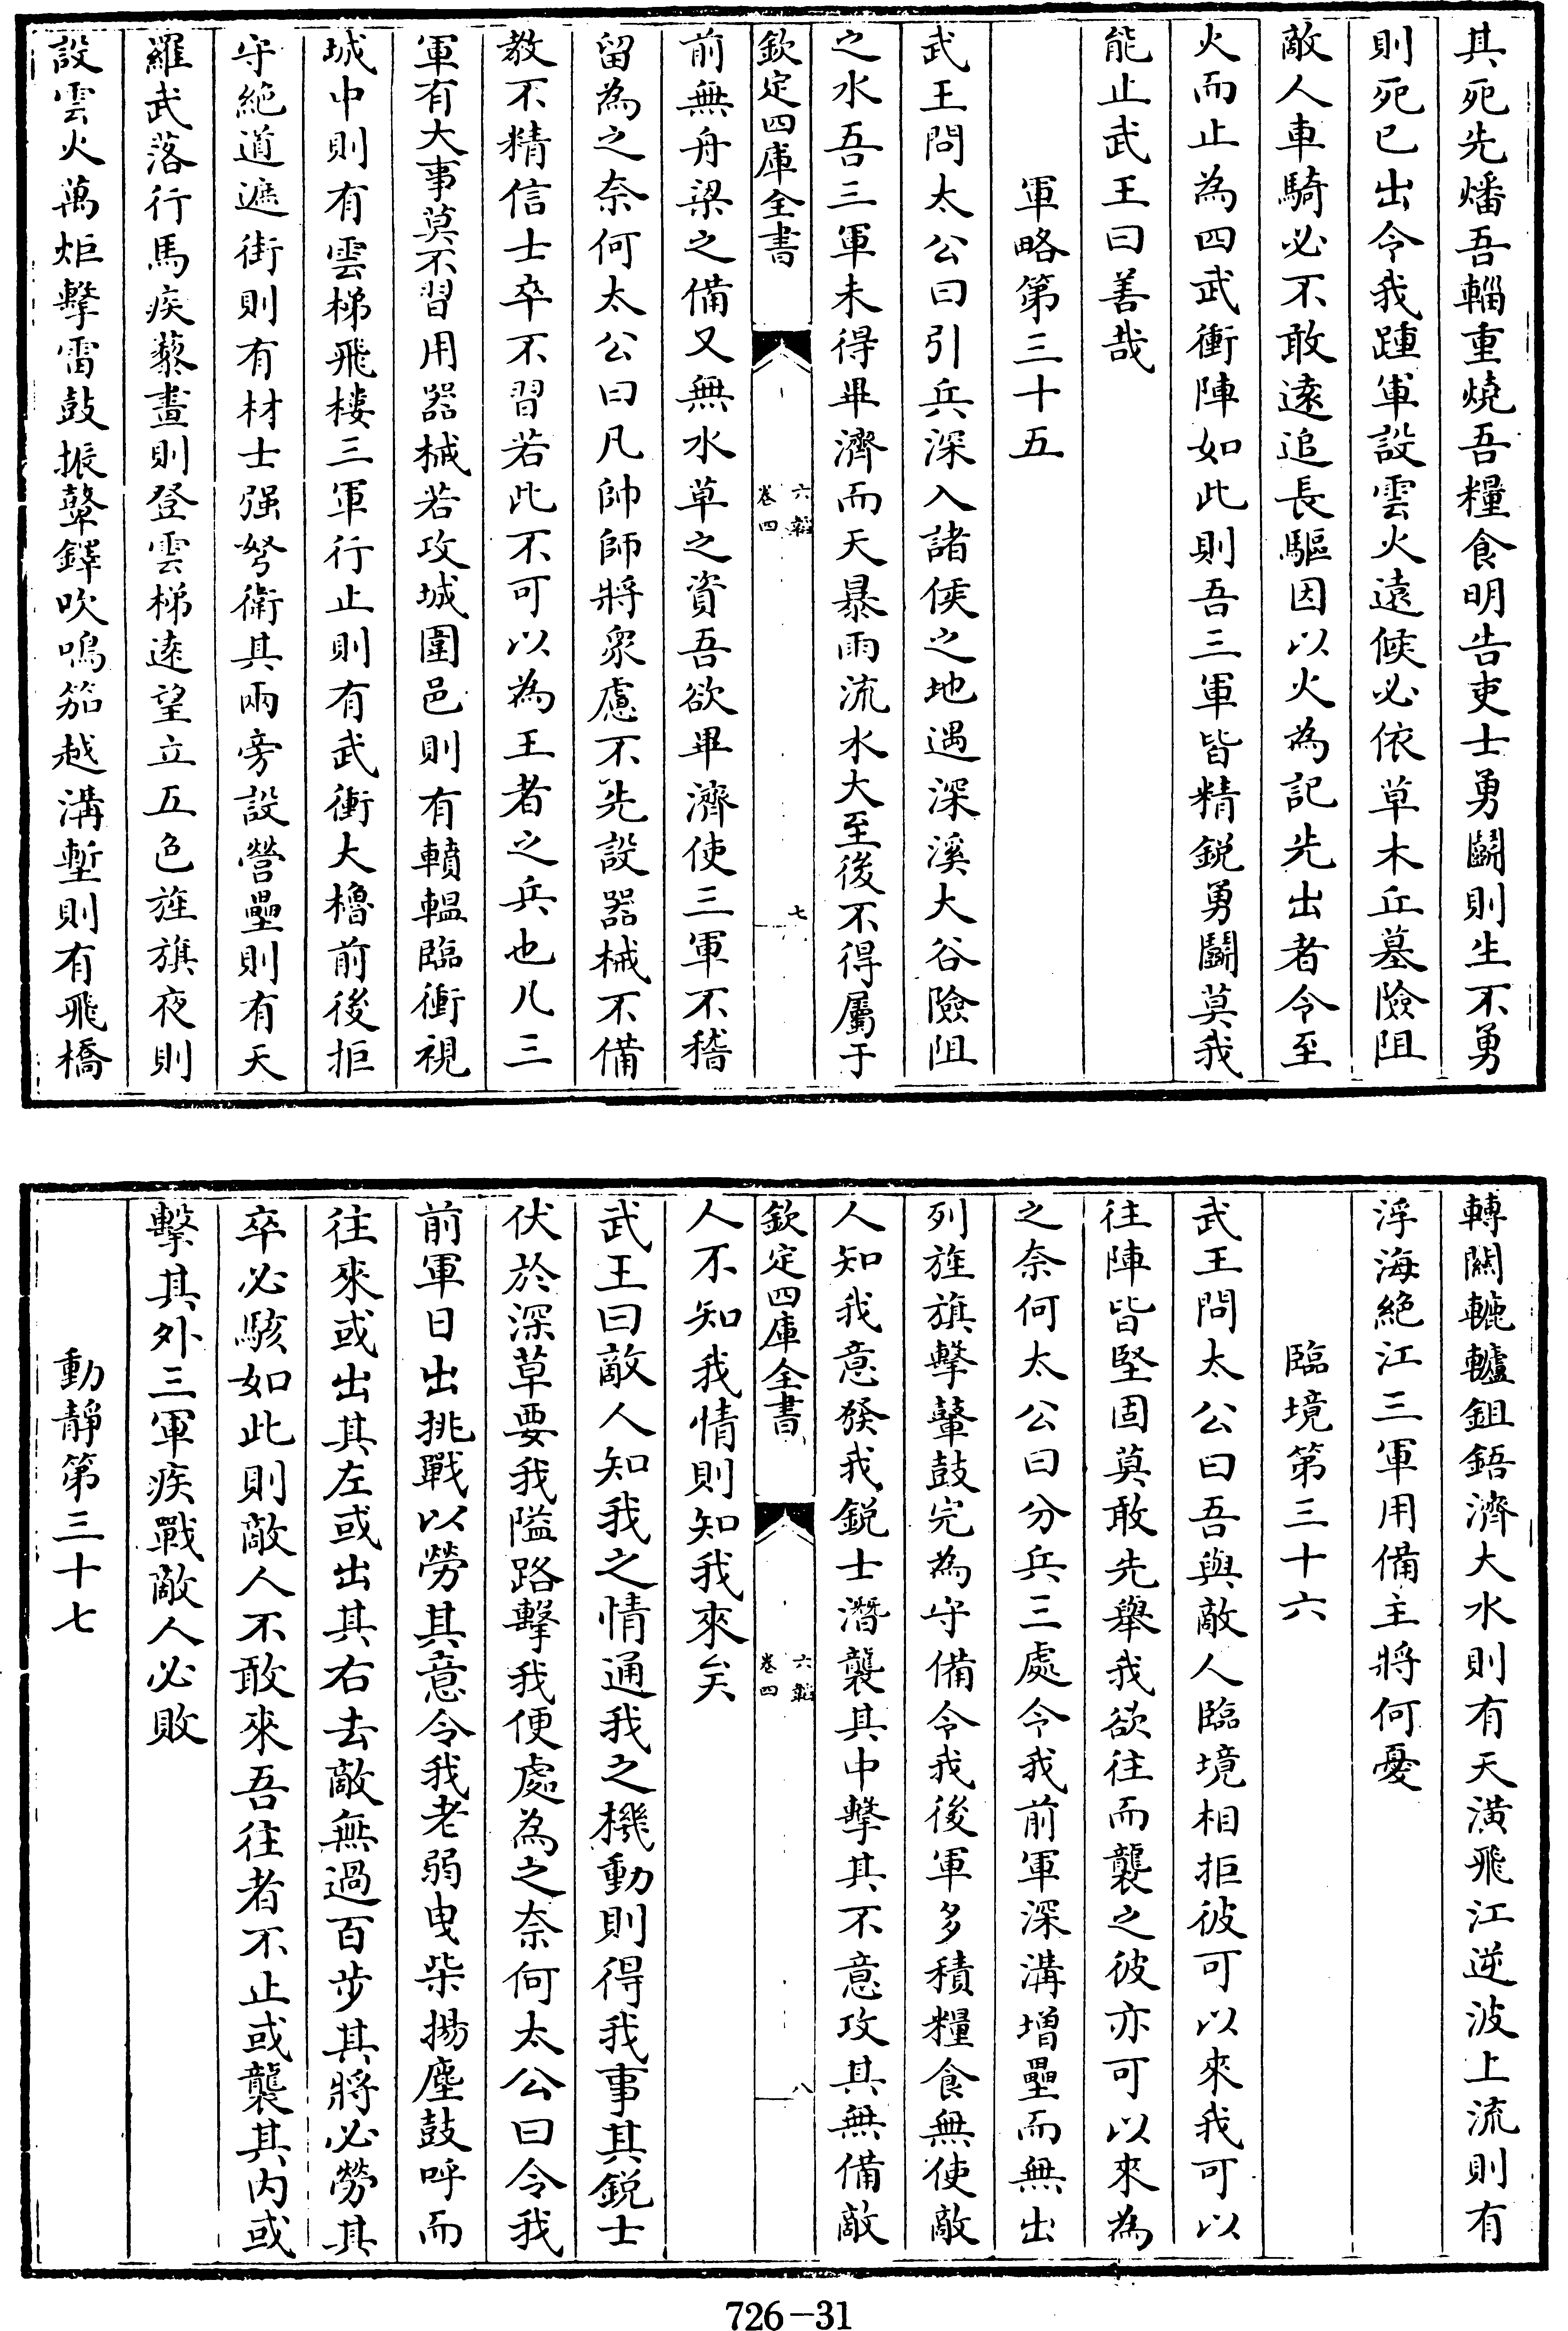 其死先燔吾輜重燒吾糧食明告吏士勇鬭則生不勇
則死已出令我踵軍設雲火逺候必依草木丘墓險阻
敵人車騎必不敢逺追長驅因以火為記先出者令至
火而止為四武衝陣如此則吾三軍皆精鋭勇鬭莫我
能止武王曰善哉
軍略第三十五
武王問太公曰引兵深入諸侯之地遇深溪大谷險阻
之水吾三軍未得畢濟而天暴雨流水大至後不得屬于
欽定四庫全書
六韜
卷四
七
前無舟梁之備又無水草之資吾欲畢濟使三軍不稽
留為之奈何太公曰凡帥師將衆慮不先設器械不備
教不精信士卒不習若此不可以為王者之兵也凡三
軍有大事莫不習用器械若攻城圍邑則有轒轀臨衝視
城中則有雲梯飛樓三軍行止則有武衝大櫓前後拒
守絶道遮街則有材士强弩衛其兩旁設營壘則有天
羅武落行馬疾藜晝則登雲梯逺望立五色旌旗夜則
設雲火萬炬擊雷鼓振鼙鐸吹鳴笳越溝塹則有飛橋
轉關轆轤鉏鋙濟大水則有天潢飛江逆波上流則有
浮海絶江三軍用備主將何憂
臨境第三十六
武王問太公曰吾與敵人臨境相拒彼可以來我可以
往陣皆堅固莫敢先舉我欲往而襲之彼亦可以來為
之奈何太公曰分兵三處令我前軍深溝增壘而無出
列旌旗擊鼙鼓完為守備令我後軍多積糧食無使敵
人知我意發我鋭士潛襲其中擊其不意攻其無備敵
欽定四庫全書
六韜
卷四
八
人不知我情則知我來矣
武王曰敵人知我之情通我之機動則得我事其鋭士
伏於深草要我隘路擊我便處為之奈何太公曰令我
前軍日出挑戰以勞其意令我老弱曳柴揚塵鼓呼而
往來或出其左或出其右去敵無過百步其將必勞其
卒必駭如此則敵人不敢來吾往者不止或襲其内或
擊其外三軍疾戰敵人必敗
動靜第三十七
726-31